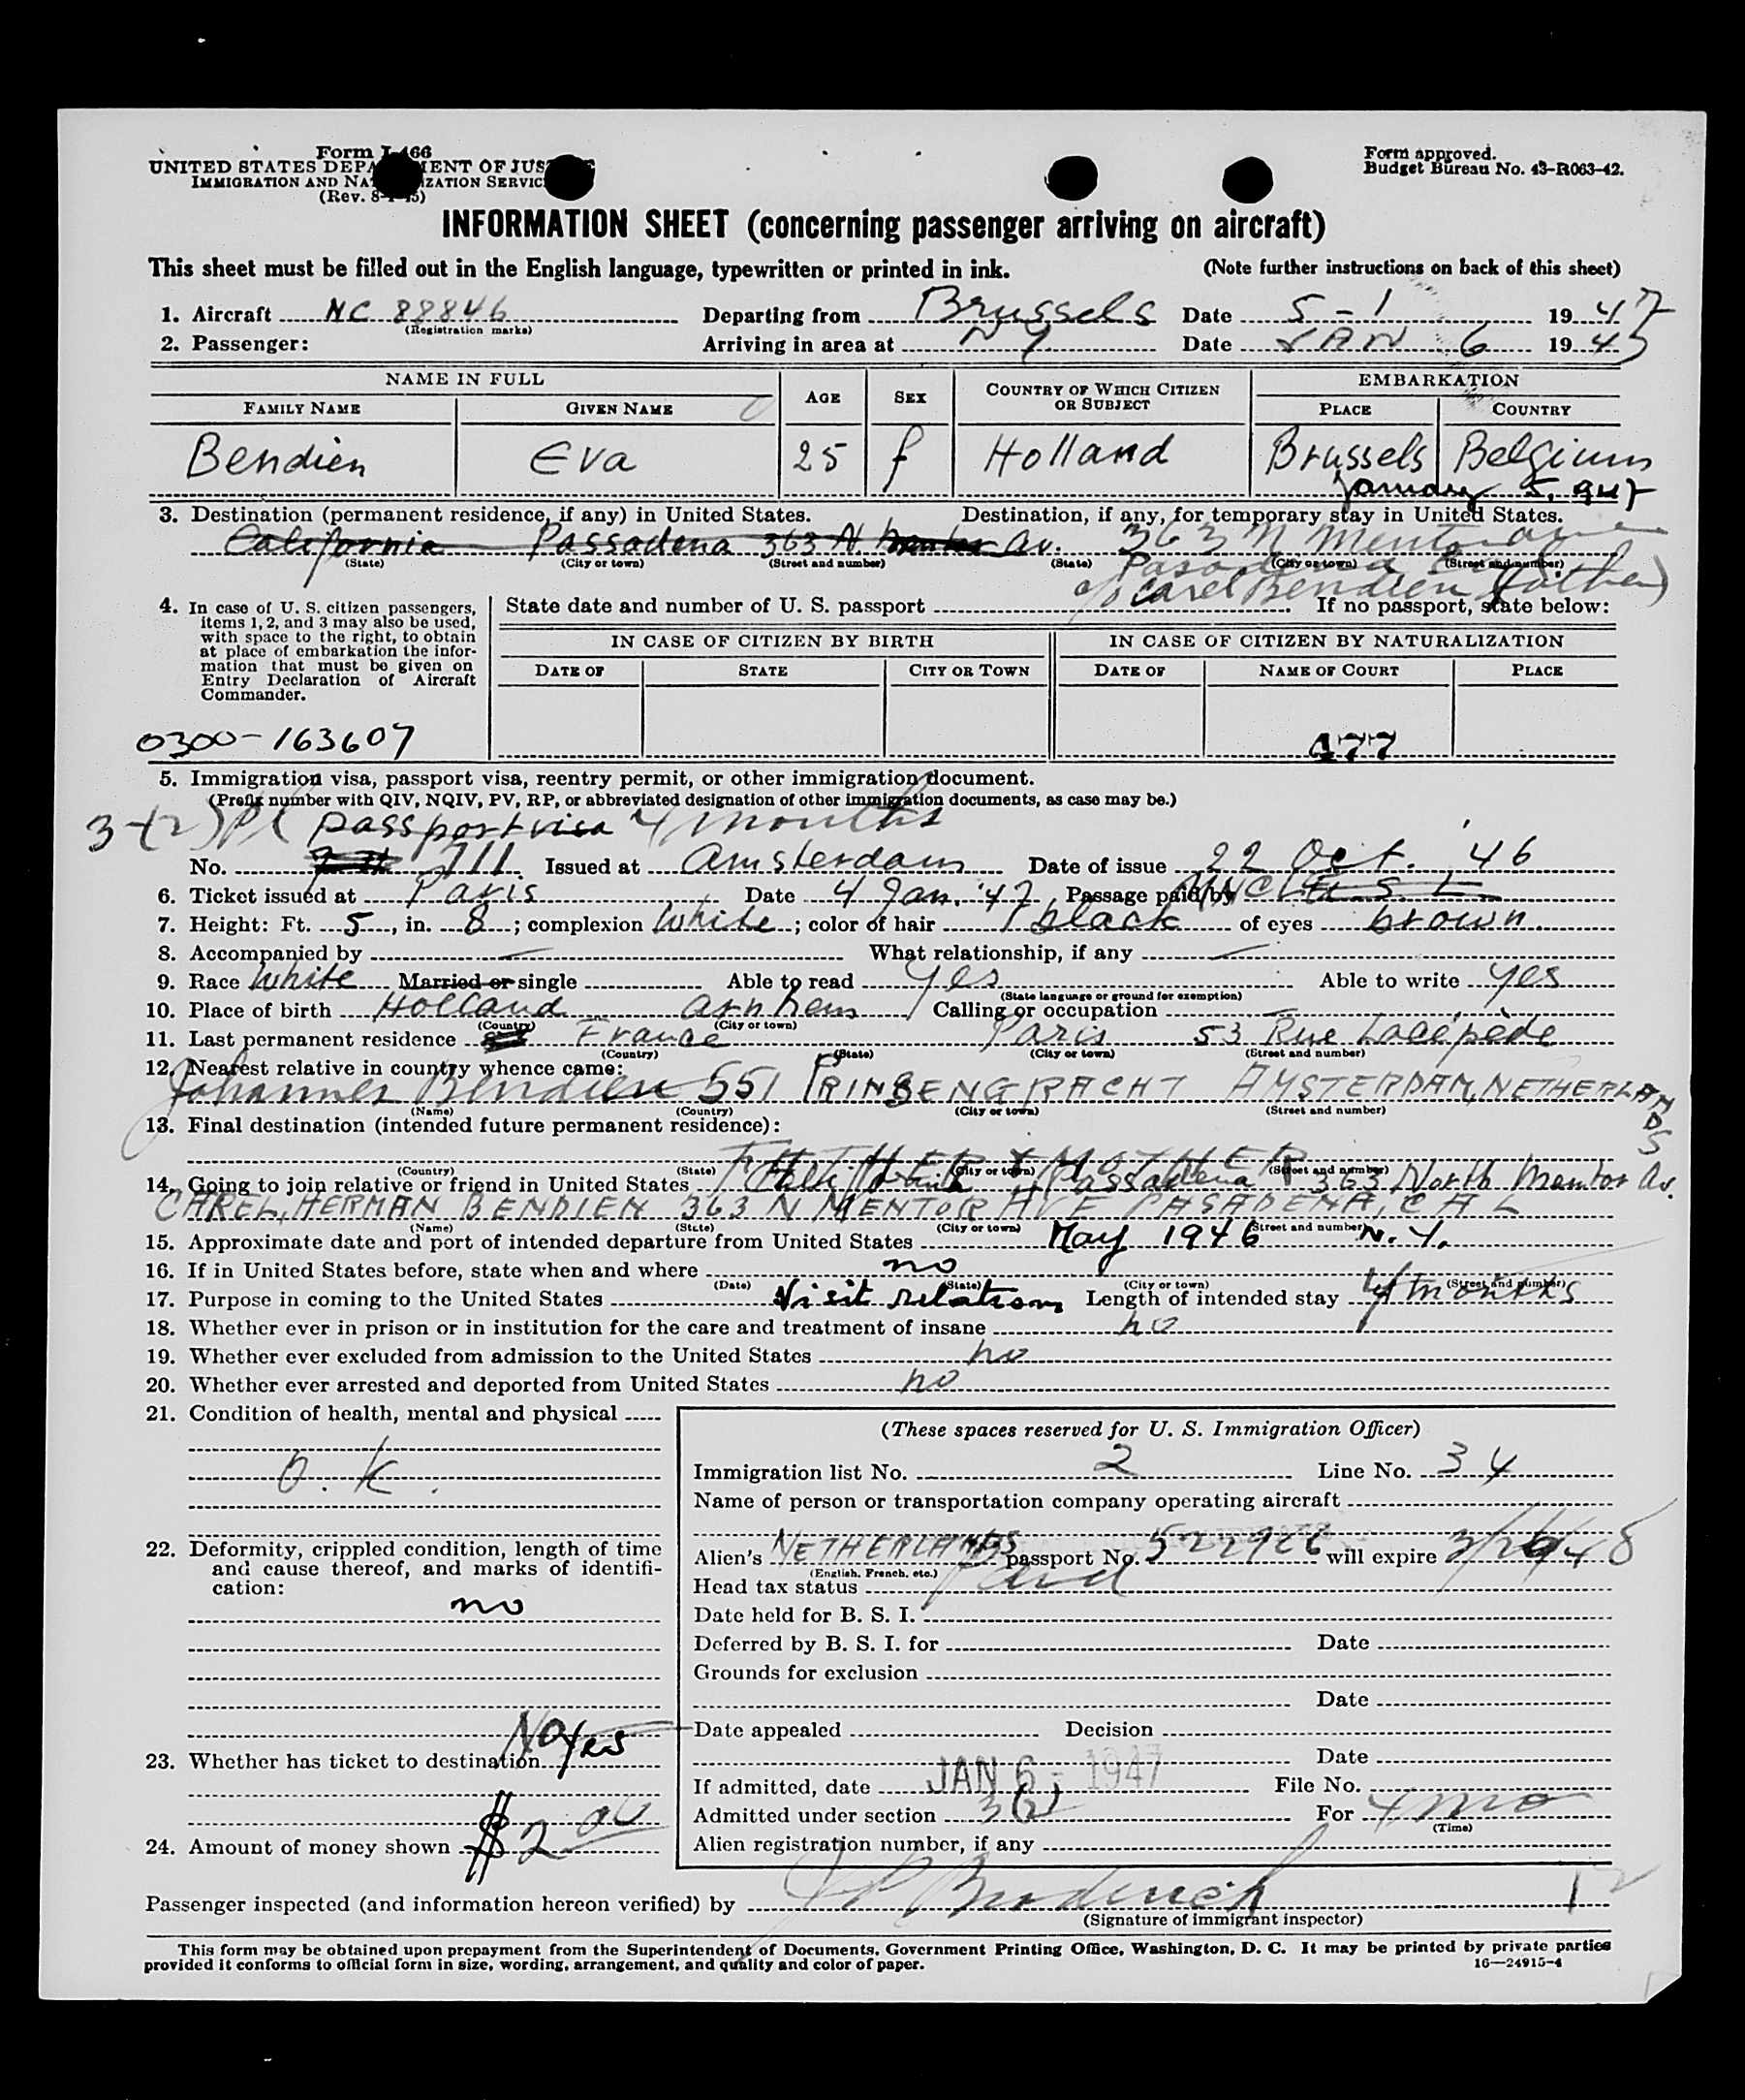 Form I-466
UNITED STATES DEPARTMENT OF JUSTICE
IMMIGRATION AND NATURALIZATION SERVICE
(Rev. 8-1-45)
Form approved.
Budget Bureau No. 43-R063-42.
INFORMATION SHEET (concerning passenger arriving on aircraft)
This sheet must be filled out in the English language, typewritten or printed in ink. (Note further instructions on back of this sheet)
1. Aircraft NC 88846 Departing from Brussels Date 5-1 1947
(Registration marks)
2. Passenger: Arriving in area at NY Date JAN 6 1947
NAME IN FULL AGE SEX COUNTRY OF WHICH CITIZEN OR SUBJECT EMBARKATION
FAMILY NAME GIVEN NAME PLACE COUNTRY
Bendien Eva 25 f Holland Brussels Belgium
January 5. 947
3. Destination (permanent residence, if any) in United States. Destination, if any, for temporary stay in United States.
California Passadena 363 N. Mentor Av. 363 N Mentor Ave
(State) (City or town) (Street and number) (State) (City or town) (Street and number)
Pasadena
c/o Carel Bendien (father)
4. In case of U. S. citizen passengers, items 1, 2, and 3 may also be used, with space to the right, to obtain at place of embarkation the information that must be given on Entry Declaration of Aircraft Commander.
State date and number of U. S. passport If no passport, state below:
IN CASE OF CITIZEN BY BIRTH IN CASE OF CITIZEN BY NATURALIZATION
DATE OF STATE CITY OR TOWN DATE OF NAME OF COURT PLACE
0300-163607 477
5. Immigration visa, passport visa, reentry permit, or other immigration document.
(Prefix number with QIV, NQIV, PV, RP, or abbreviated designation of other immigration documents, as case may be.)
3-(2) passport visa 4 months
No. 711 Issued at Amsterdam Date of issue 22 Oct. '46
6. Ticket issued at Paris Date 4 Jan. '47 Passage paid by UNCLE
7. Height: Ft. 5, in. 8; complexion White; color of hair black of eyes brown
8. Accompanied by — What relationship, if any —
9. Race White Married or single Able to read yes Able to write yes
(State language or ground for exemption)
10. Place of birth Holland Arnhem Calling or occupation —
(Country) (City or town)
11. Last permanent residence France Paris 53 Rue Lacépède
(Country) (State) (City or town) (Street and number)
12. Nearest relative in country whence came:
Johannes Bendien 551 PRINSENGRACHT AMSTERDAM, NETHERLANDS
(Name) (Country) (City or town) (Street and number)
13. Final destination (intended future permanent residence):
FATHER & MOTHER
(Country) (State) (City or town) (Street and number)
14. Going to join relative or friend in United States California Passadena 363 North Mentor Av.
CAREL, HERMAN BENDIEN 363 N MENTOR AVE PASADENA, CAL
(Name) (State) (City or town) (Street and number)
15. Approximate date and port of intended departure from United States May 1946 N.Y.
16. If in United States before, state when and where no
(Date) (State) (City or town) (Street and number)
17. Purpose in coming to the United States Visit relations Length of intended stay 4 months
18. Whether ever in prison or in institution for the care and treatment of insane no
19. Whether ever excluded from admission to the United States no
20. Whether ever arrested and deported from United States no
21. Condition of health, mental and physical
O.K.
22. Deformity, crippled condition, length of time and cause thereof, and marks of identification:
no
23. Whether has ticket to destination No yes
24. Amount of money shown $2.00
(These spaces reserved for U. S. Immigration Officer)
Immigration list No. 2 Line No. 34
Name of person or transportation company operating aircraft
Alien's NETHERLANDS passport No. 522926 will expire 3/26/48
(English, French, etc.)
Head tax status Paid
Date held for B. S. I.
Deferred by B. S. I. for Date
Grounds for exclusion
Date
Date appealed Decision
Date
If admitted, date JAN 6 - 1947 File No.
Admitted under section 3(2) For 4 mo
(Time)
Alien registration number, if any
Passenger inspected (and information hereon verified) by
(Signature of immigrant inspector)
This form may be obtained upon prepayment from the Superintendent of Documents, Government Printing Office, Washington, D. C. It may be printed by private parties
provided it conforms to official form in size, wording, arrangement, and quality and color of paper. 16—24915-4